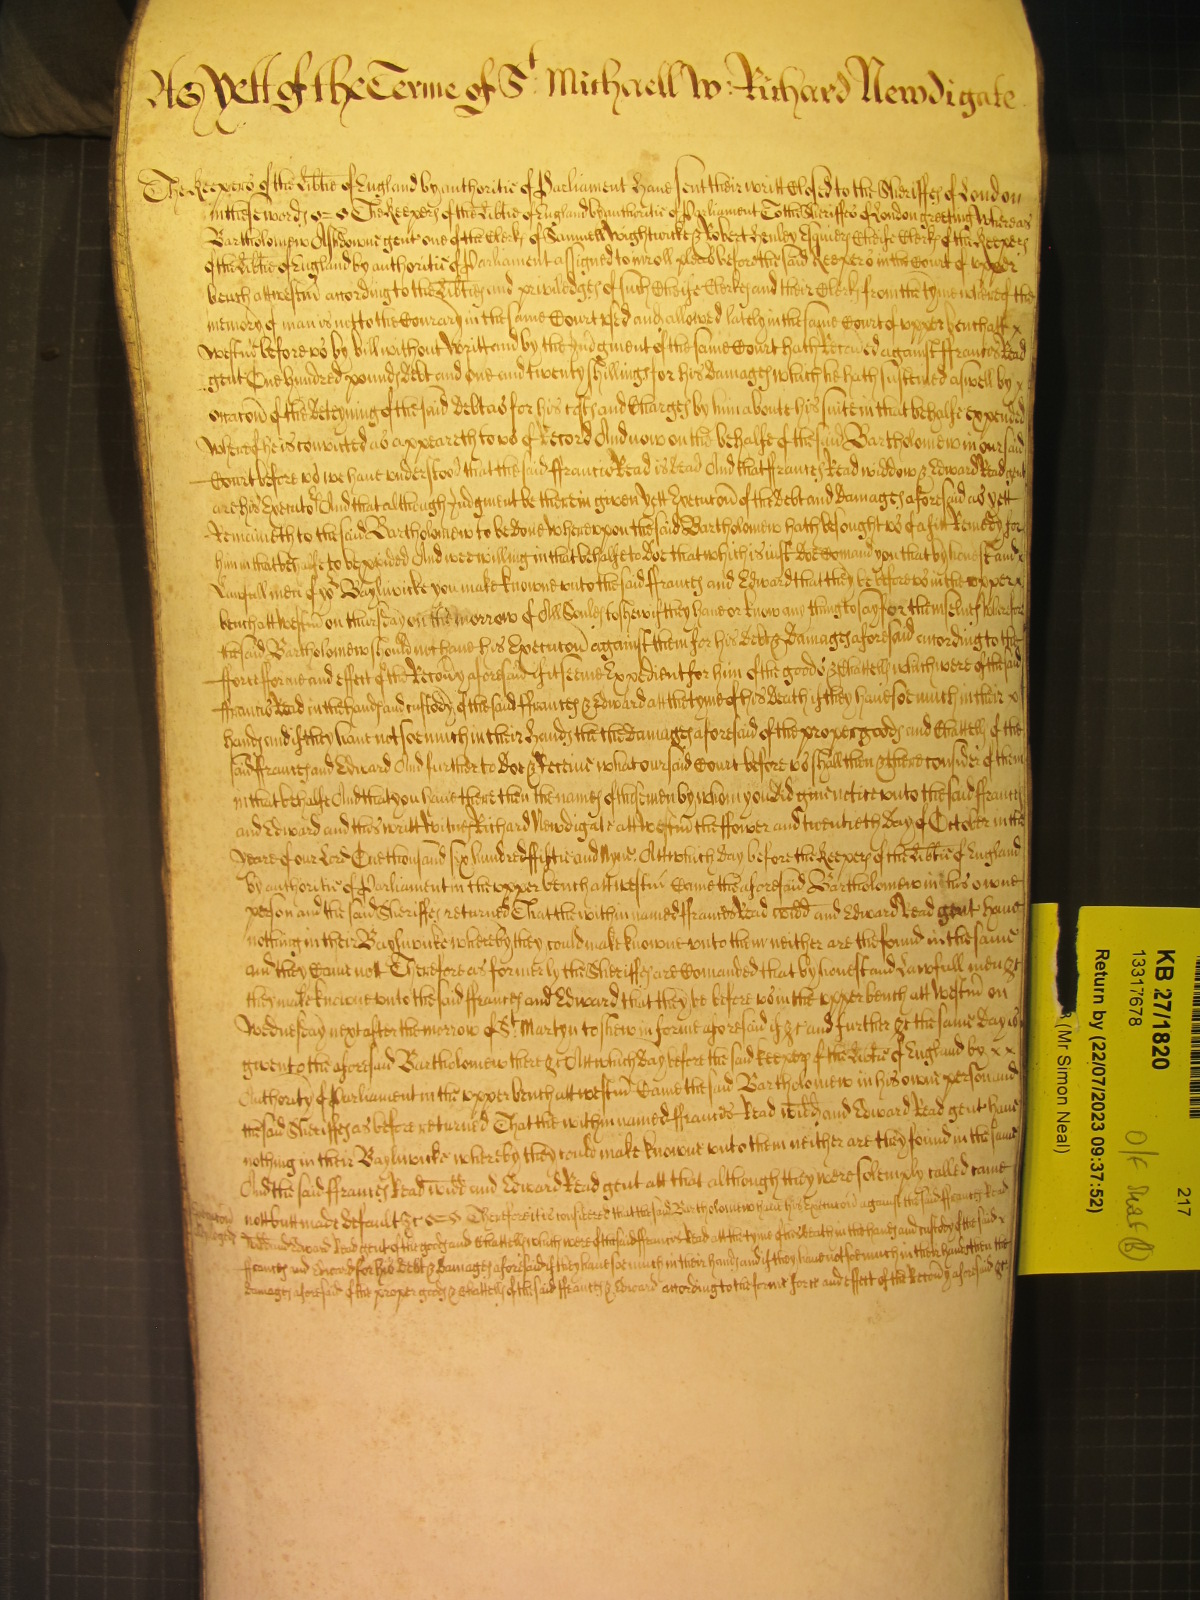 As Yett of the Terme of St Michaell W: Richard Newdigate
The Keepers of the Libtie of England by authoritie of Parliament have sent their writt Closed to the Sheriffes of London
in these words s= s The Keepers of the Libtie of England by authoritie of Parliament To the Sheriffes of London greeting Whereas
Bartholomew Ashdowne gent one of the Clerks of Samuell Wightwicke & Robert Henley Esquiers Cheife Clerks of the Keepers
of the Libtie of England by authoritie of Parliament assigned to inroll plees before the said Keepers in the Court of upper
bench att westm according to the Libties and priviledges of such Cheife Clerkes and their Clerks from the tyme whereof the
memory of man is not to the Contrary in the same Court used and allowed lately in the same Court of upper bench att x
Westm before us by bill without Writt and by the Judgment of the same Court hath Recovered against ffrancis Read
gent One hundred pounds debt and one and twenty shillings for his damages which he hath susteined aswell by x
occacon of the deteyning of the said debt as for his costs and Charges by him aboute his suite in that behalfe expended
whereof he is convicted as appeareth to us of Record And now on the behalfe of the said Bartholomew in our said
Court before us we have understood that the said ffrancis Read is dead And that ffrances Read widdow & Edward Read gent
are his Executo And that although Judgment be therein given yett Execucon of the debt and damages aforesaid as yett
Remaineth to the said Bartholomew to be done whereupon the said Bartholomew hath besought us of a fitt Remedy for
him in that behalfe to be provided And wee willing in that behalfe to doe that which is just doe Comand you that by honest and x
Lawfull men of yor Baylywicke you make knowne unto the said ffrances and Edward that they be before us in the upper x
bench att Westm on thursday on the morrow of All Soules to shew if they have or know any thing to say for themselves wherefore
the said Bartholomew should not have his Execucon against them for his debt & damages aforesaid according to the
fforce forme and effect of the Recovy aforesaid If it seeme Expedient for him of the goods & Chattells which were of the said
ffrancis Read in the hands and custody of the said ffrances & Edward att the tyme of his death if they have soe much in their x
hands and if they have not soe much in their hands then the damages aforesaid of the proper goods and Chattells of the
said ffrances and Edward And further to doe & Receive what our said Court before us shall then & there consider of them
in that behalfe And that you have there then the names of those men by whom you did give notice unto the said ffrances
and Edward and this writt Witnes Richard Newdigate att westm the ffower and twentieth day of October in the
yeare of our Lord One thousand six hundred fiftie and Nyne. Att which day before the Keepers of the Libtie of England
by authoritie of Parliament in the upper bench att westm Came the aforesaid Bartholomew in his owne
person and the said Sheriffes returned That the within named ffrances Read widd and Edward Read gent have
nothing in their Baylywicke whereby they could make knowne unto them neither are the found in the same
and they Came not Therefore as formerly the Sheriffes are Comanded that by honest and Lawfull men &c
they make knowne unto the said ffrances and Edward that they be before us in the upper bench att Westm on
Wednesday next after the morrow of St Martyn to shew in forme aforesaid if &c and further &c the same day is
given to the aforesaid Bartholomew there &c Att which day before the said keepers of the Libtie of England by x x
Authority of Parliament in the upper bench att westm Came the said Bartholomew in his owne person and
the said Sheriffes as before returned That the within named ffrances Read widd and Edward Read gent have
nothing in their Baylywicke whereby they could make knowne unto them neither are they found in the same
And the said ffrances Read widd and Edward Read gent att that although they were solemply called came
not butt made default &c s=s Therefore it is considered that the said Bartholomew have his Execucon against the said ffrances Read
widd and Edward Read gent of the goods and Chattells which were of the said ffrancis Read att the tyme of his death in the hands and custody of the said x
ffrances and Edward for his debt & damages aforesaid if they have soe much in their hands and if they have not soe much in their hands then the
damages aforesaid of the proper goods & Chattells of the said ffrances & Edward according to the forme force and effect of the Recovy aforesaid &c
KB 27/1820
13317678
217
Return by (22/07/2023 09:37:52)
(Mr Simon Neal)